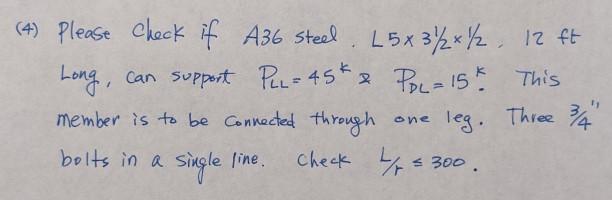 (4) Please Check if A36 steel. L5x3½x½, 12 ft
Long, can support PLL=45ᵏ & PDL=15ᵏ. This
member is to be connected through one leg. Three ¾"
bolts in a single line. Check L/r ≤ 300.